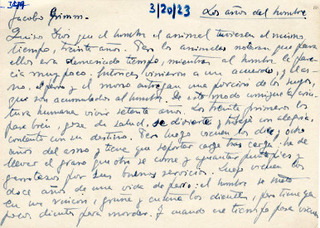 3/20/23
Los años del hombre
Jacobo Grimm.-
Quiso Dios que el hombre y el animal tuviesen el mismo
tiempo, treinta años. Pero los animales notaron que para
ellos era demasiado tiempo, mientras al hombre le pare-
cía muy poco. Entonces vinieron a un acuerdo, y el as-
no, el perro y el mono entregan una porción de los suyos,
que son acumulados al hombre. De este modo consigue la cria-
tura humana vivir setenta años. Los treinta primeros los
pasa bien, goza de salud, se divierte y trabaja con alegría,
contento con su destino. Pero luego vienen los diez y ocho
años del asno y tiene que soportar carga tras carga: ha de
llevar el grano que otro se come y aguantar puntapiés y
garrotazos por sus buenos servicios. Luego vienen los
doce años de una vida de perro: el hombre se mete
en un rincón, gruñe y enseña los dientes, pero tiene ya
pocos dientes para morder. Y cuando este tiempo pasa vienen